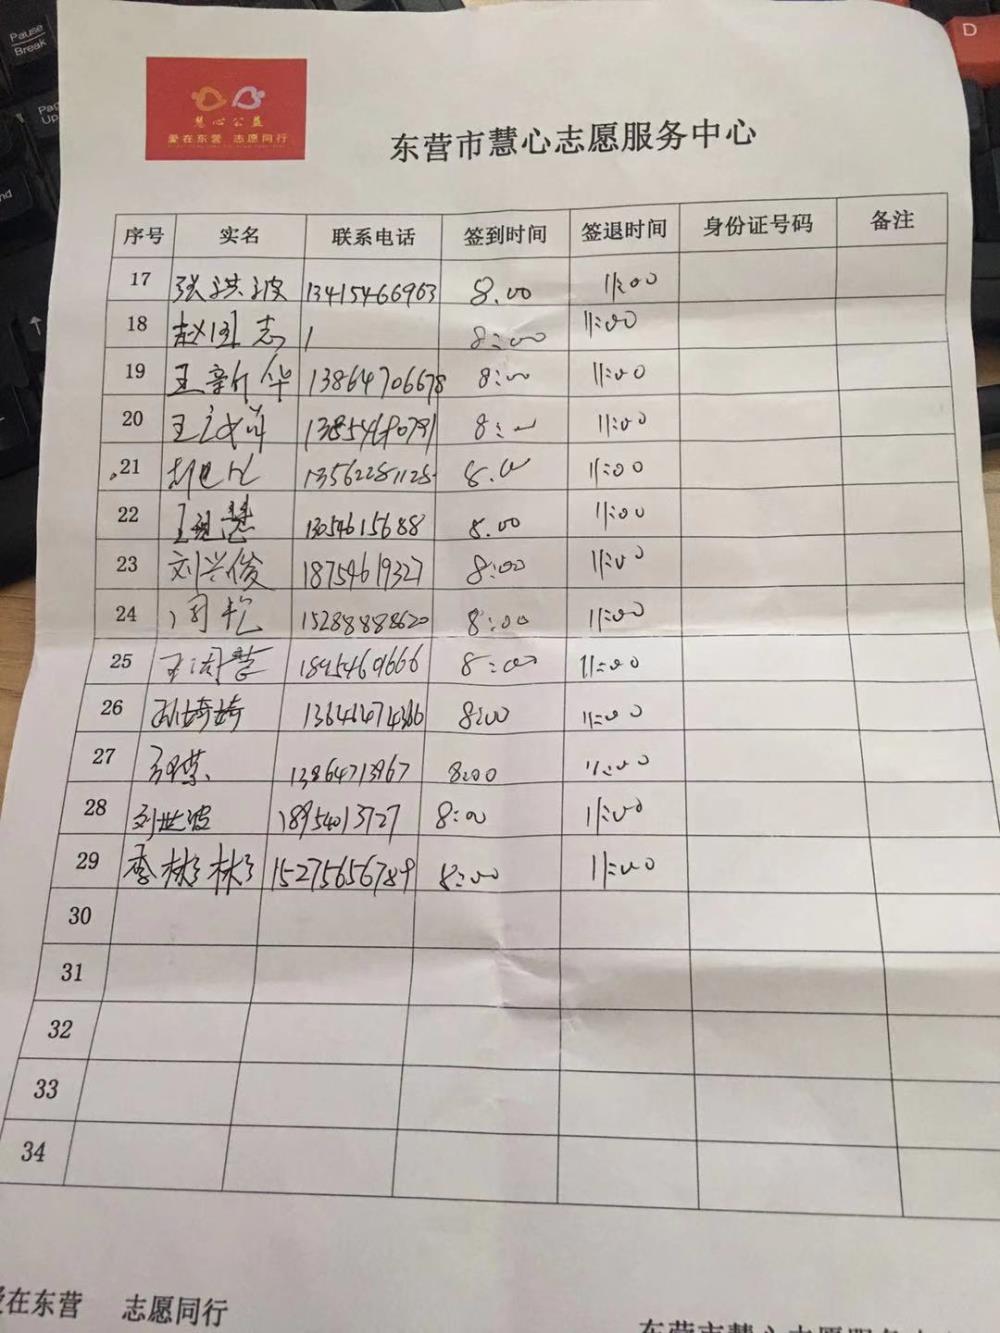 Pause
Break
D
慧心公益
爱在东营 志愿同行
东营市慧心志愿服务中心
序号 实名 联系电话 签到时间 签退时间 身份证号码 备注
17 张洪波 13415466963 8.00 11:00
18 赵国志 1 8:00 11:00
19 王新华 13864706678 8:00 11:00
20 王 8:00 11:00
21 13562281128 8.00 11:00
22 王 慧 13054615688 8.00 11:00
23 刘兴俊 18754619327 8:00 11:00
24 周艳 15288888620 8:00 11:00
25 王 18954601666 8:00 11:00
26 孙琦琦 8:00 11:00
27 13864713967 8:00 11:00
28 刘世波 18954013727 8:00 11:00
29 季彬彬 15275656789 8:00 11:00
30
31
32
33
34
爱在东营 志愿同行
东营市慧心志愿服务中心